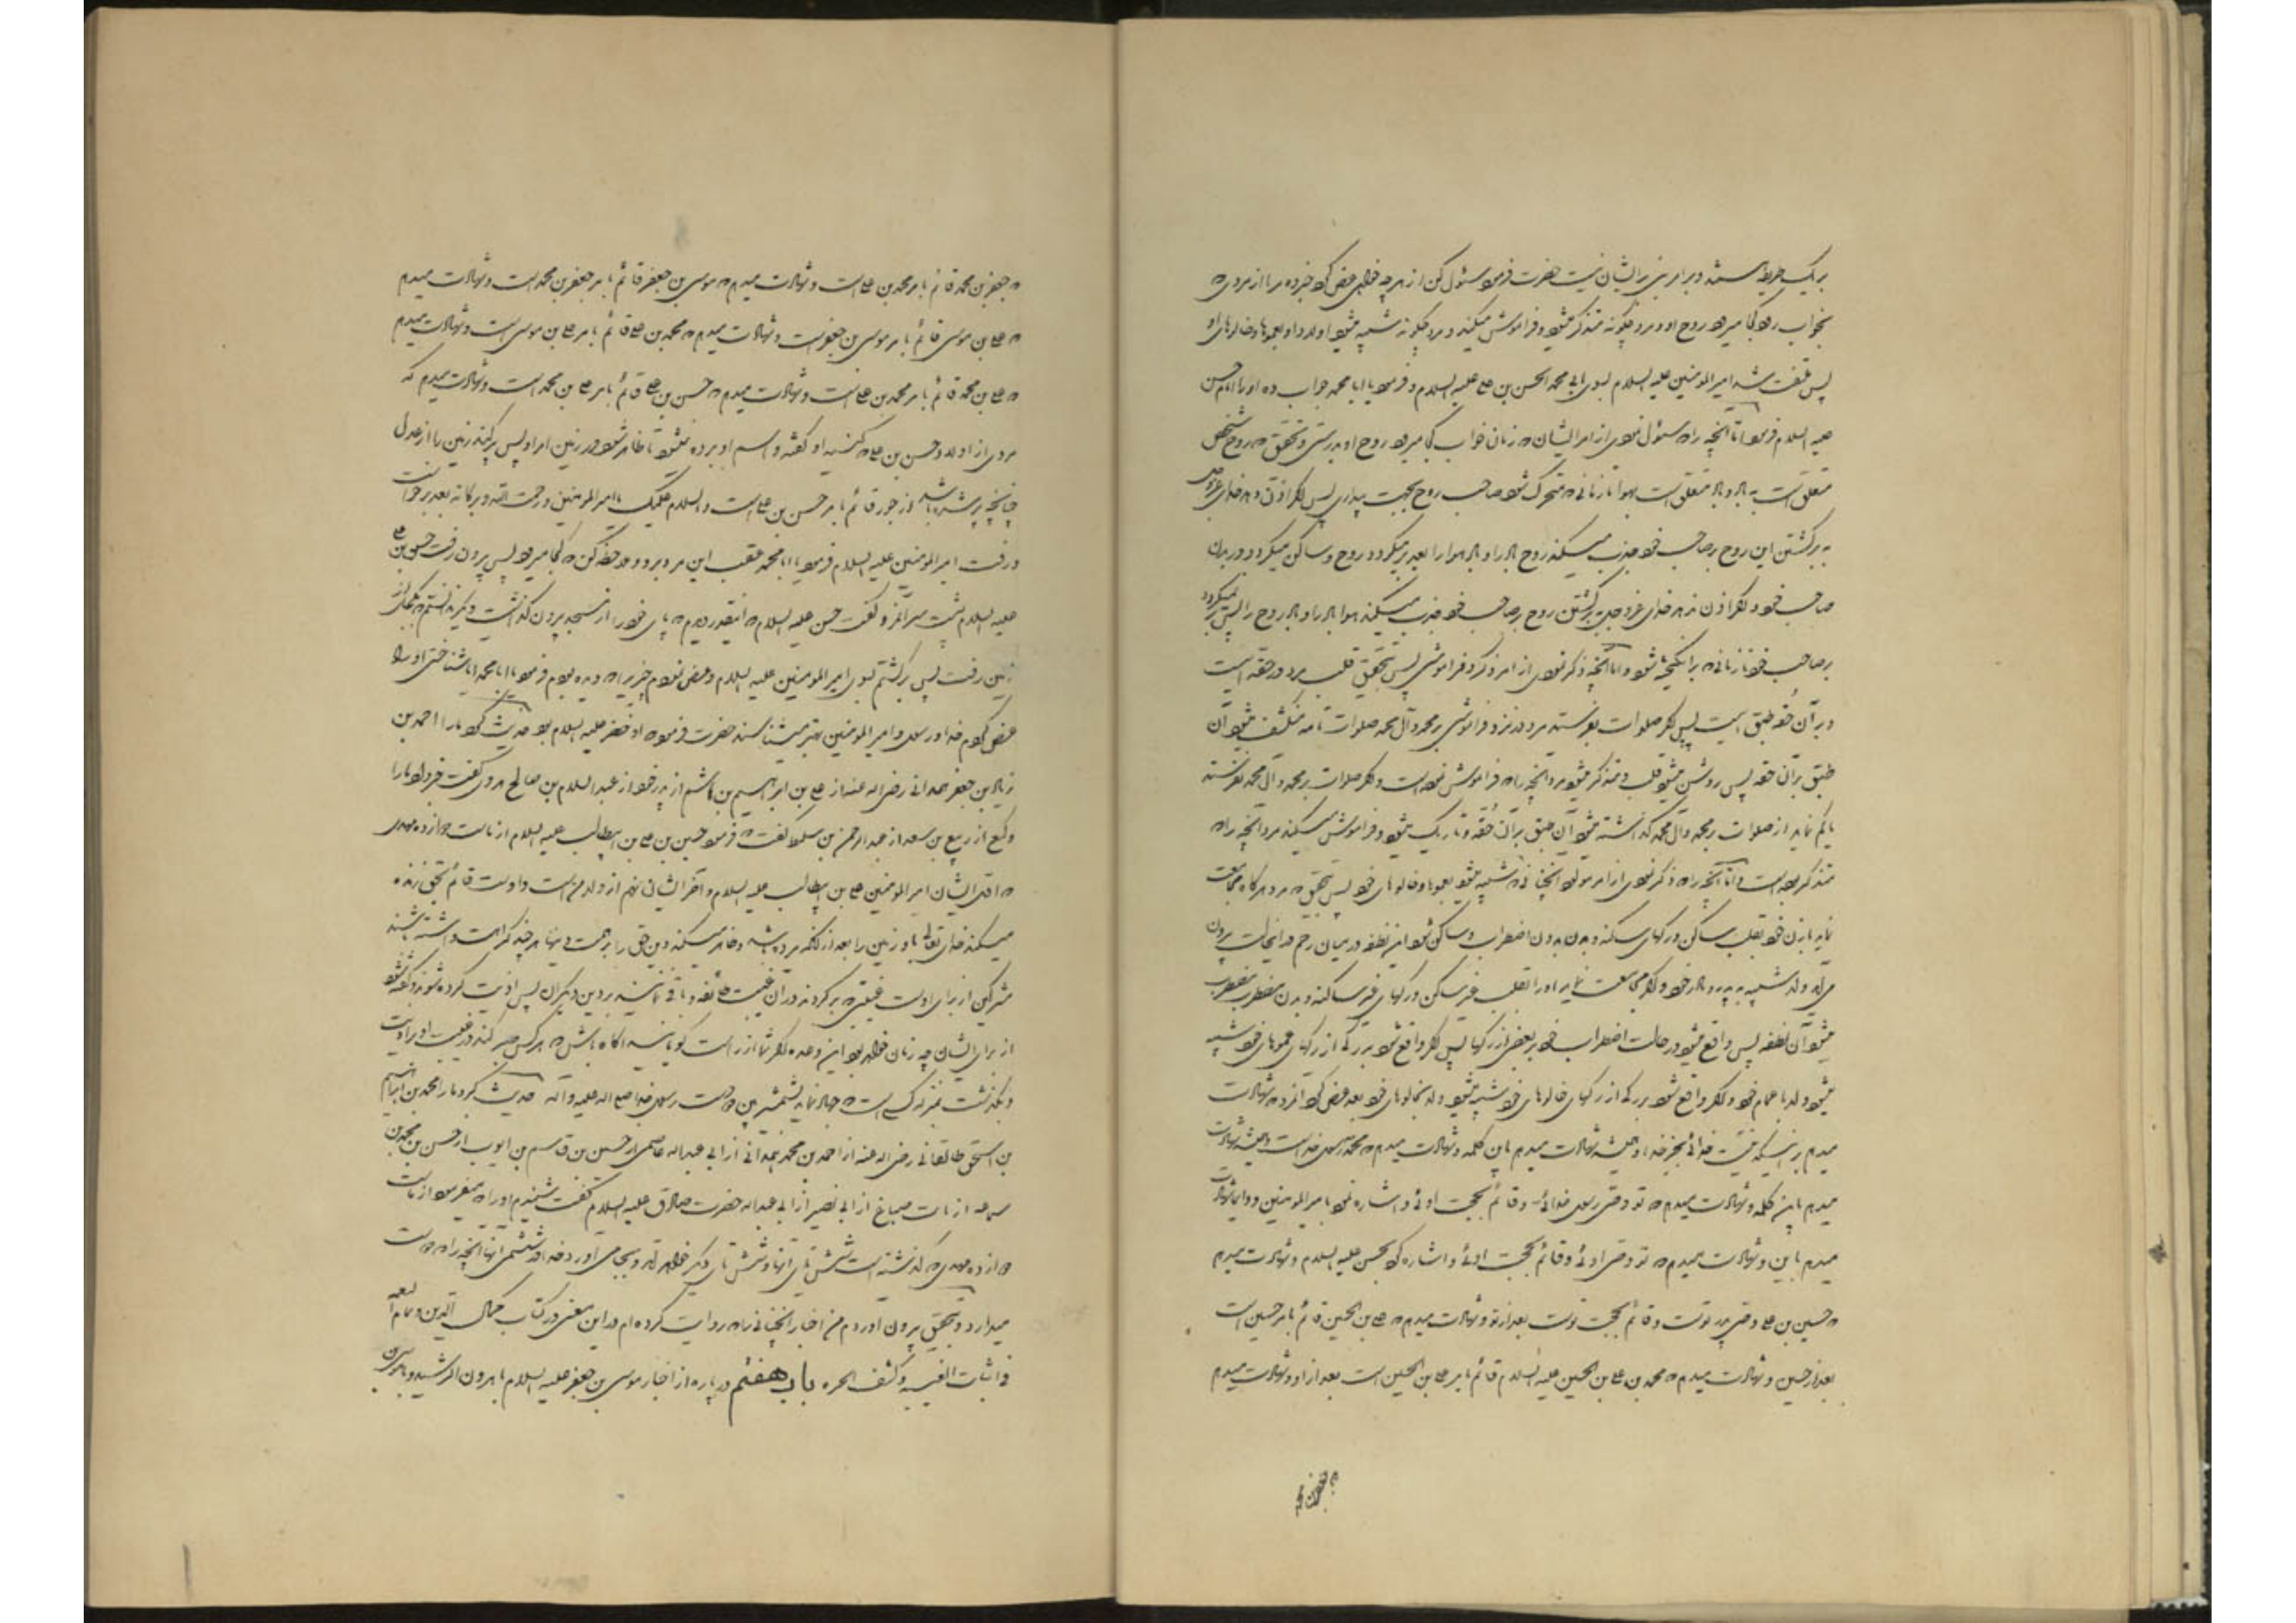 حضرت فرمود سئوال کن از هر چه خواهی عرض کرد خبر ده مرا از مردی که
بخواب رود کجا میرود روح او و مرد چگونه متذکر میشود و فراموش میکند و مرد چگونه شبیه میشود اولاد او بعموها و خالوهای او
پس ملتفت شد امیرالمومنین علیه السلام بسوی ابی محمد الحسن بن علی علیه السلام و فرمود یا ابا محمد جواب ده او را امام حسن
علیه السلام فرمود اما آنچه را که سئوال نمودی از امر انسان که زمان خواب کجا میرود روح او بدرستی و تحقیق که روح شخص
متعلق است به باد و باد متعلق است بهوا تا زمانی که متحرک شود صاحب روح بجهت بیداری پس اگر اذن دهد خدای عزوجل
به برگشتن این روح بر صاحب خود جذب میکند روح باد را و باد هوا را بعد بر میگردد روح و ساکن میگردد در بدن
صاحب خود و اگر اذن ندهد خدای عزوجل به برگشتن روح بر صاحب خود جذب میکند هوا باد را و باد روح را پس بر نمیگردد
بر صاحب خود تا زمانی که برانگیخته شود و اما آنچه ذکر نمودی از امر ذکر و فراموشی پس بتحقیق قلب مرد در حقه ایست
و بر آن حقه طبقی است پس اگر صلوات بفرستد مرد در نزد فراموشی بر محمد و آل محمد صلوات تامه منکشف میشود آن
طبق بر آن حقه پس روشن میشود قلب و متذکر میشود مرد آنچه را که فراموش نموده است و اگر صلوات بر محمد و آل محمد نفرستد
یا کم نماید از صلوات بر محمد و آل محمد گذاشته میشود آن طبق بر آن حقه و تاریک میشود و فراموش میکند مرد آنچه را که
متذکر بوده است و اما آنچه را که ذکر نمودی از امر مولود آنچنانی که شبیه میشود بعموها و خالوهای خود پس بتحقیق که مرد هرگاه مجامعت
نماید با زن خود بقلب ساکن و رگهای ساکنه و بدن بدون اضطراب و ساکن شود این نطفه در میان رحم در اینحالت بیرون
می آید ولد شبیه به پدر و مادر خود و اگر مجامعت نماید او را بقلب غیر ساکن و رگهای غیر ساکنه و بدن مضطرب مضطرب
میشود آن نطفه پس واقع میشود در حالت اضطراب خود بر بعضی از رگها پس اگر واقع شود بر رگی از رگهای عموهای خود شبیه
میشود ولد باعمام خود و اگر واقع شود بر رگی از رگهای خالوهای خود شبیه میشود ولد بخالوهای خود بعد عرض کرد آنمرد که شهادت
میدهم باینکه نیست خدائی بجز خدا و همیشه شهادت میدهم باین کلمه و شهادت میدهم که محمد رسول خداست و همیشه شهادت
میدهم باین کلمه و شهادت میدهم که تو وصی رسول خدائی و قائم بحجت اوئی و اشاره نمود بامیرالمومنین و دائما شهادت
میدهم باین و شهادت میدهم که تو وصی اوئی و قائم بحجت اوئی و اشاره کرد بحسن علیه السلام و شهادت میدهم
که حسین بن علی وصی پدر توست و قائم بحجت توست بعد از تو و شهادت میدهم که علی بن الحسین قائم بامر حسین است
بعد از حسین و شهادت میدهم که محمد بن علی بن الحسین علیه السلام قائم بامر علی بن الحسین است بعد از او و شهادت میدهم
که جعفر بن محمد
که جعفر بن محمد قائم بامر محمد بن علی است و شهادت میدهم که موسی بن جعفر قائم بامر جعفر بن محمد است و شهادت میدهم
که علی بن موسی قائم بامر موسی بن جعفر است و شهادت میدهم که محمد بن علی قائم بامر علی بن موسی است و شهادت میدهم
که علی بن محمد قائم بامر محمد بن علی است و شهادت میدهم که حسن بن علی قائم بامر علی بن محمد است و شهادت میدهم که
مردی از اولاد حسن بن علی که کنیه او گفته و اسم او برده نمیشود تا ظاهر شود در زمین امر او پس پر کند زمین را از عدل
چنانچه پر شده باشد از جور قائم بامر حسن بن علی است و السلام علیک یا امیرالمومنین و رحمت الله و برکاته بعد برخاست
و رفت امیرالمومنین علیه السلام فرمود یا ابا محمد عقب این مرد برو و ملاحظه کن که کجا میرود پس بیرون رفت حسن بن علی
علیه السلام پشت سر آنمرد گفت حسن علیه السلام که اینقدر دیدم که پای خود را از مسجد بیرون گذاشت و دیگر ندانستم که بکجای از
زمین رفت پس برگشتم بسوی امیرالمومنین علیه السلام و عرض نمودم چیزی را که دیده بودم فرمود یا ابا محمد آیا شناختی او را
عرض کردم خدا و رسول و امیرالمومنین بهتر میشناسند حضرت فرمود که او خضر علیه السلام بود حدیث کرد ما را احمد بن
زیاد بن جعفر همدانی رضی الله عنه از علی بن ابراهیم بن هاشم از پدر خود از عبدالسلام بن صالح هروی گفت خبر داد ما را
وکیع از ربیع بن سعد از عبدالرحمن بن سلیط گفت که فرمود حسین بن علی بن ابیطالب علیه السلام از ماست دوازده مهدی
که اول ایشان امیرالمومنین علی بن ابیطالب علیه السلام و آخر ایشان نهم از اولاد من است و اوست قائم بحق زنده
میکند خدای تعالی باو زمین را بعد از آنکه مرده باشد و ظاهر میکند دین حق را بر همه دینها هر چند کراهت داشته باشند
مشرکین از برای اوست غیبتی که برگردند در آن غیبت طائفه و باقی باشند بر دین دیگران پس اذیت کرده شوند و گفته شود
از برای ایشان چه زمان خواهد بود این وعده اگر شما از راست گویانید آگاه باش که هر کس صبر کند در غیبت او بر اذیت
و تکذیب بمنزله کسی است که جهاد نماید بشمشیر بین دست رسول خدا صلی الله علیه و آله حدیث کرد ما را محمد بن ابراهیم
بن اسحق طالقانی رضی الله عنه از احمد بن محمد همدانی از ابی عبدالله عاصمی از حسین بن قاسم بن ایوب از حسن بن محمد بن
سماعه از ثابت صباغ از ابی بصیر از ابی عبدالله حضرت صادق علیه السلام گفت شنیدم او را که میفرمود از ماست
دوازده مهدی که گذشته است شش تای آنها و شش تای دیگر خواهد آمد و بجا می آورد خدا در ششمی آنها آنچه را که دوست
میدارد و بتحقیق بیرون آوردم من اخبار آنچنانی را که روایت کرده ام در این معنی در کتاب کمال الدین و تمام النعمه
فی اثبات الغیبه و کشف الحیره باب هفتم در پاره از اخبار موسی بن جعفر علیه السلام با هرون الرشید و با موسی بن